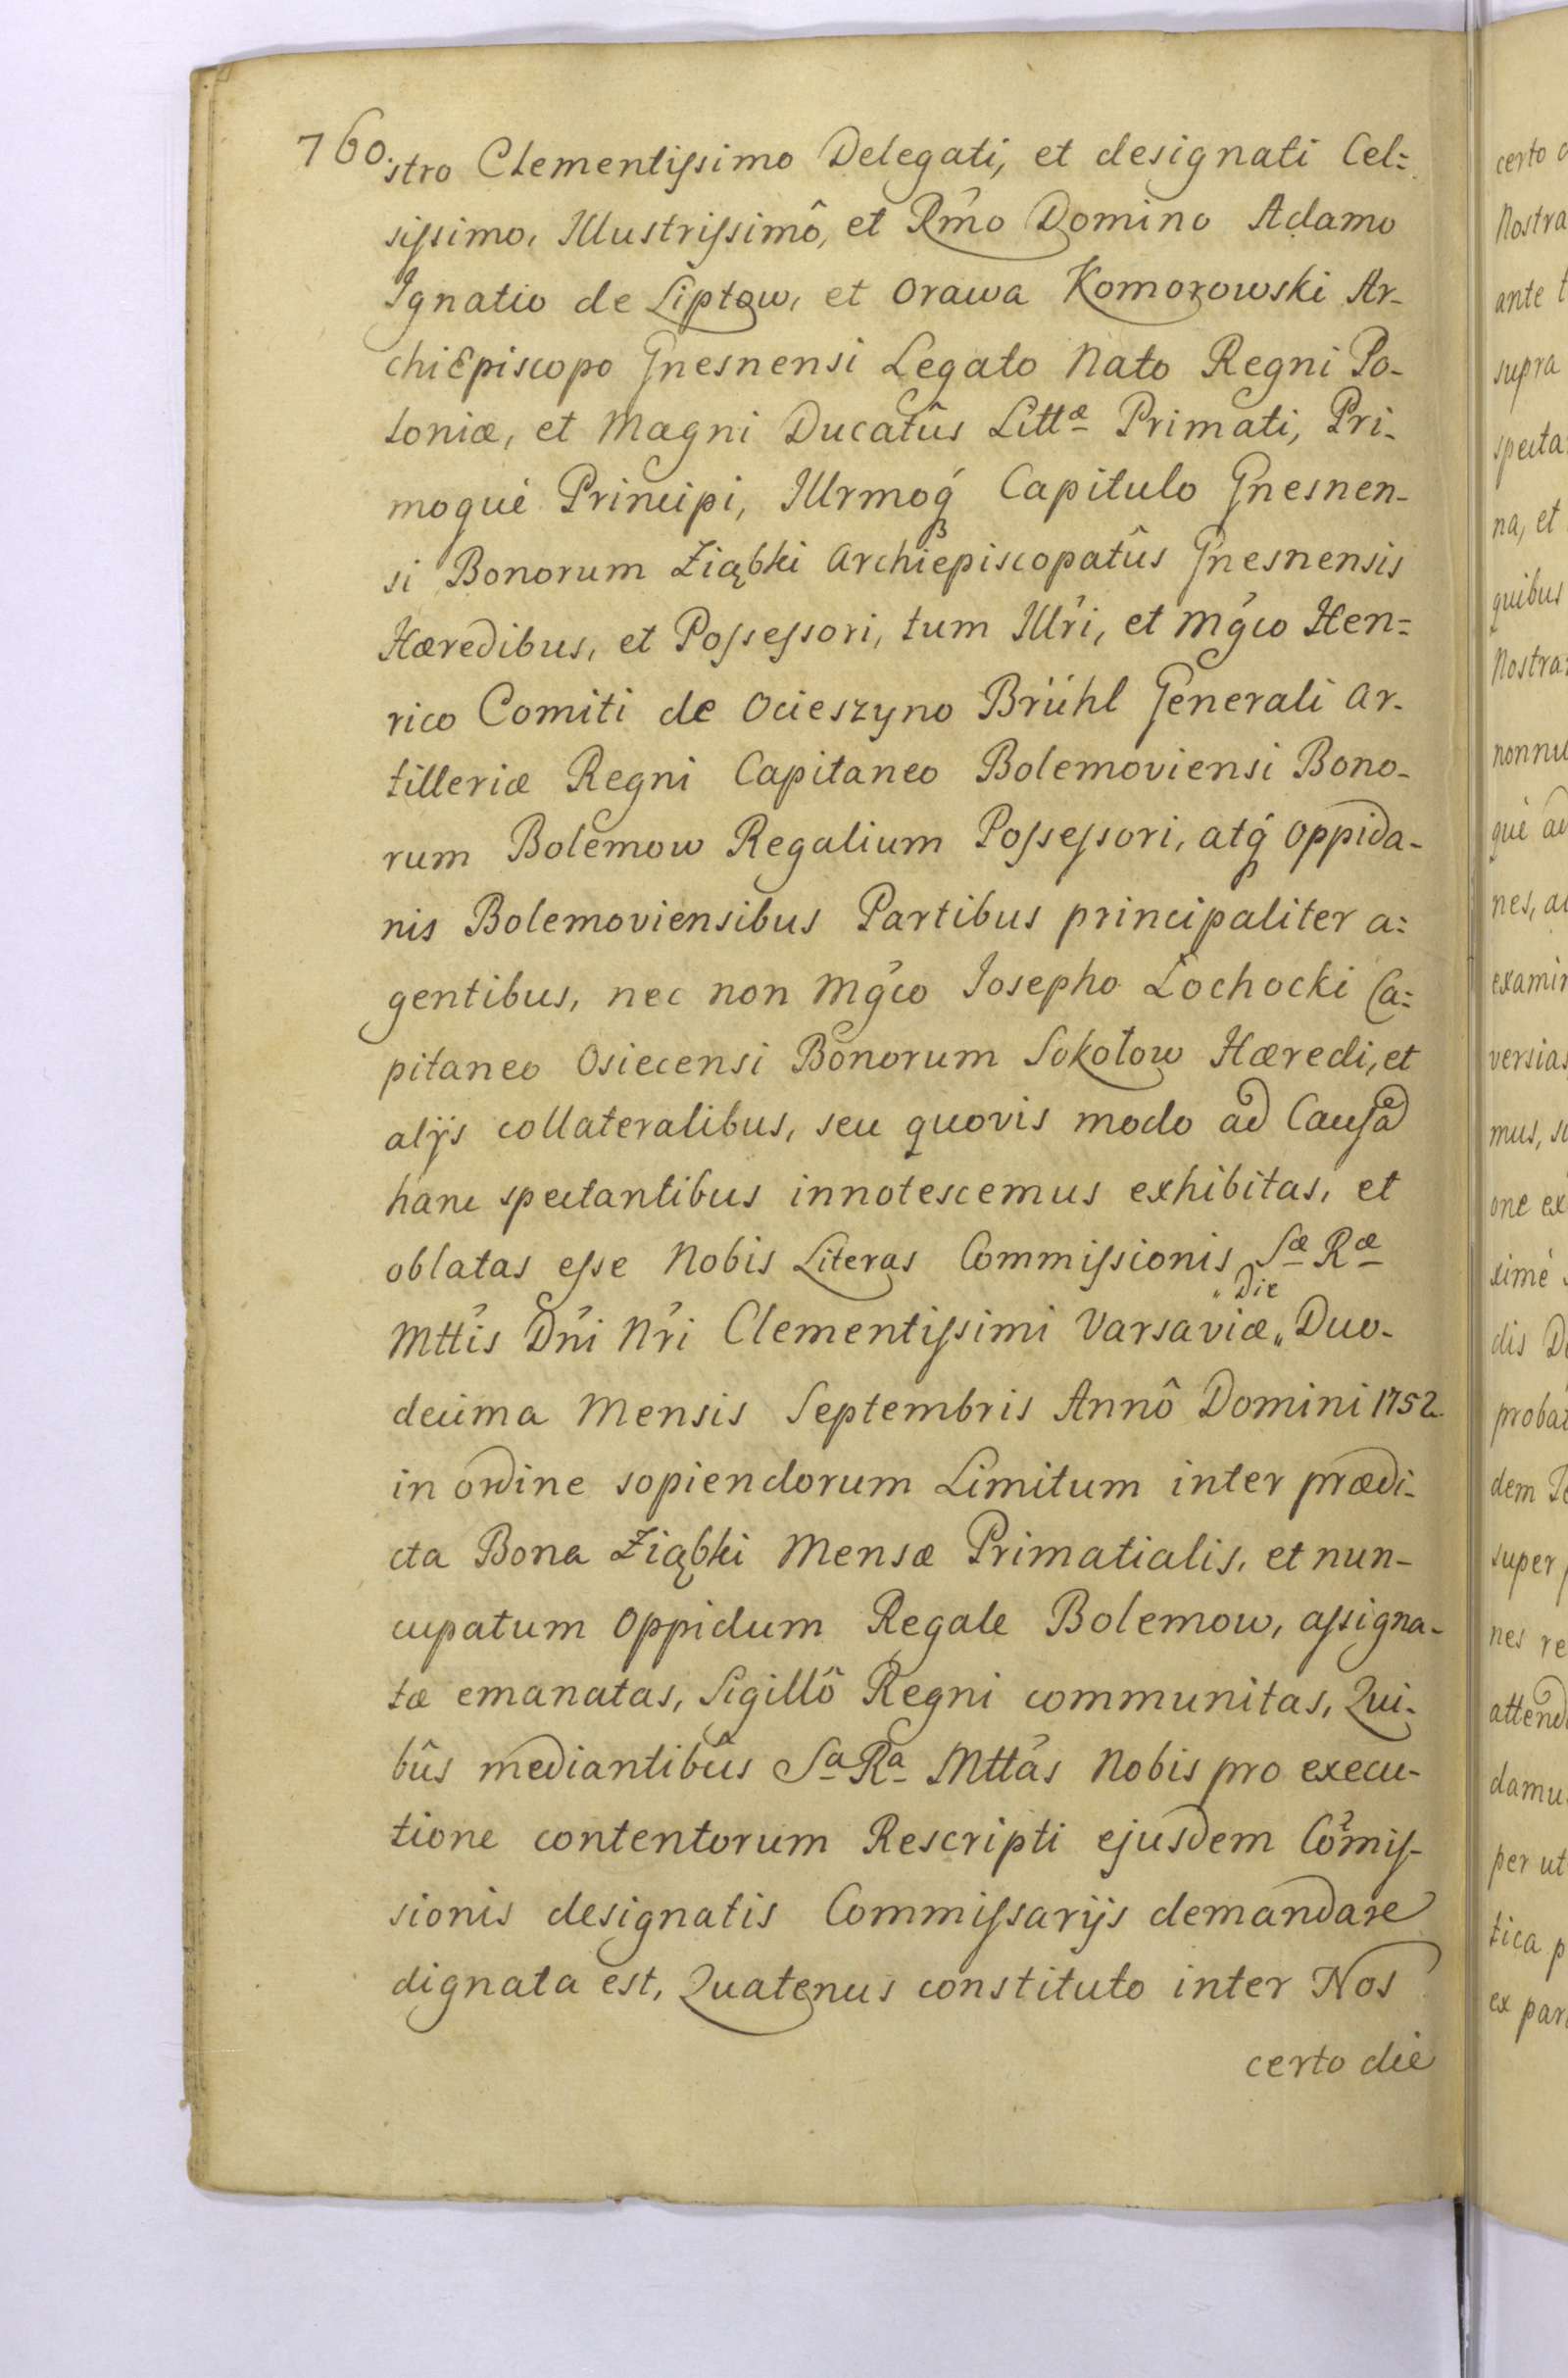 760.
stro Clementissimo Delegati, et designati Cel=
sissimo, Illustrissimô, et Rm̃o Domino Adamo
Ignatio de Liptow, et Orawa Komorowski Ar-
chiEpiscopo Gnesnensi Legato Nato Regni Po-
loniæ, et Magni Ducatûs Littæ Primati, Pri-
moque Principi, Illrmoq́ Capitulo Gnesnen-
si Bonorum Ziąbki Archiepiscopatûs Gnesnensis
Hæredibus, et Possessori, tum Illr̃i, et Mg̃co Hen=
rico Comiti de Ocieszyno Brühl Generali Ar-
tilleriæ Regni Capitaneo Bolemoviensi Bono-
rum Bolemow Regalium Possessori, atq́ Oppida-
nis Bolemoviensibus Partibus principaliter a=
gentibus, nec non Mg̃co Iosepho Łochocki Ca=
pitaneo Osiecensi Bonorum Sokołow Hæredi, et
alijs collateralibus, seu quovis modo ad Causã
hanc spectantibus innotescemus exhibitas, et
oblatas esse Nobis Literas Commissionis Sæ Ræ
Die
Mttis Dñi Nr̃i Clementissimi Varsaviæ „ Duo-
decima Mensis Septembris Annô Domini 1752
in ordine sopiendorum Limitum inter prædi-
cta Bona Ziąbki Mensæ Primatialis, et nun-
cupatum Oppidum Regale Bolemow, assigna-
tæ emanatas, Sigillô Regni communitas, Qui-
bûs mediantibûs Sa Ra Mttãs Nobis pro execu-
tione contentorum Rescripti ejusdem Cõmis-
sionis designatis Commissarijs demandare
dignata est, Quatenus constituto inter Nos
certo die
certo
Nostra
ante t
supra
specta
na, et
quibus
Nostra
nonnu
què ad
nes, ac
examin
versias
mus, s
one ex
ximè
dis D
probat
dem
super
nes re
attend
damu
per ut
tica p
ex par